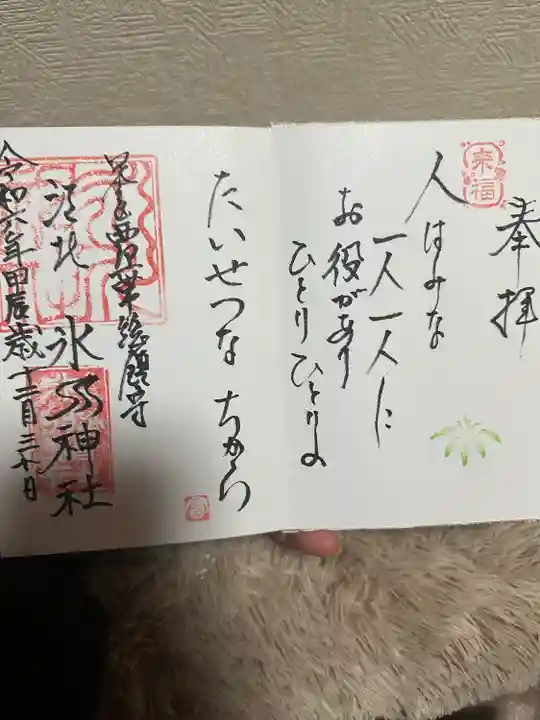 奉拝
来福
人はみな
一人一人に
お役があり
ひとりひとりの
たいせつな ちから
江北 氷川神社
令和六年甲辰歳十二月三十日